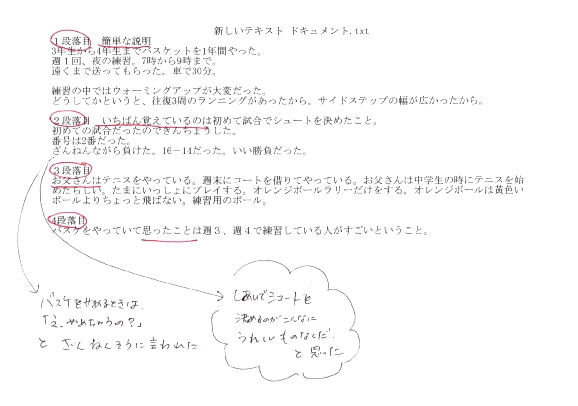 新しいテキスト ドキュメント.txt
１段落目　簡単な説明
3年生から4年生までバスケットを1年間やった。
週１回、夜の練習。7時から9時まで。
遠くまで送ってもらった。車で30分。
練習の中ではウォーミングアップが大変だった。
どうしてかというと、往復3周のランニングがあったから。サイドステップの幅が広かったから。
２段落目　いちばん覚えているのは初めて試合でシュートを決めたこと。
初めての試合だったのできんちょうした。
番号は2番だった。
ざんねんながら負けた。16－14だった。いい勝負だった。
３段落目
お父さんはテニスをやっている。週末にコートを借りてやっている。お父さんは中学生の時にテニスを始
めたらしい。たまにいっしょにプレイする。オレンジボールラリーだけをする。オレンジボールは黄色い
ボールよりちょっと飛ばない。練習用のボール。
4段落目
バスケをやっていて思ったことは週３、週４で練習している人がすごいということ。
バスケをやめるときは、
「え、やめちゃうの？」
と ざんねんそうに言われた
しあいでシュートを
決めるのがこんなに
うれしいものなんだ
と思った